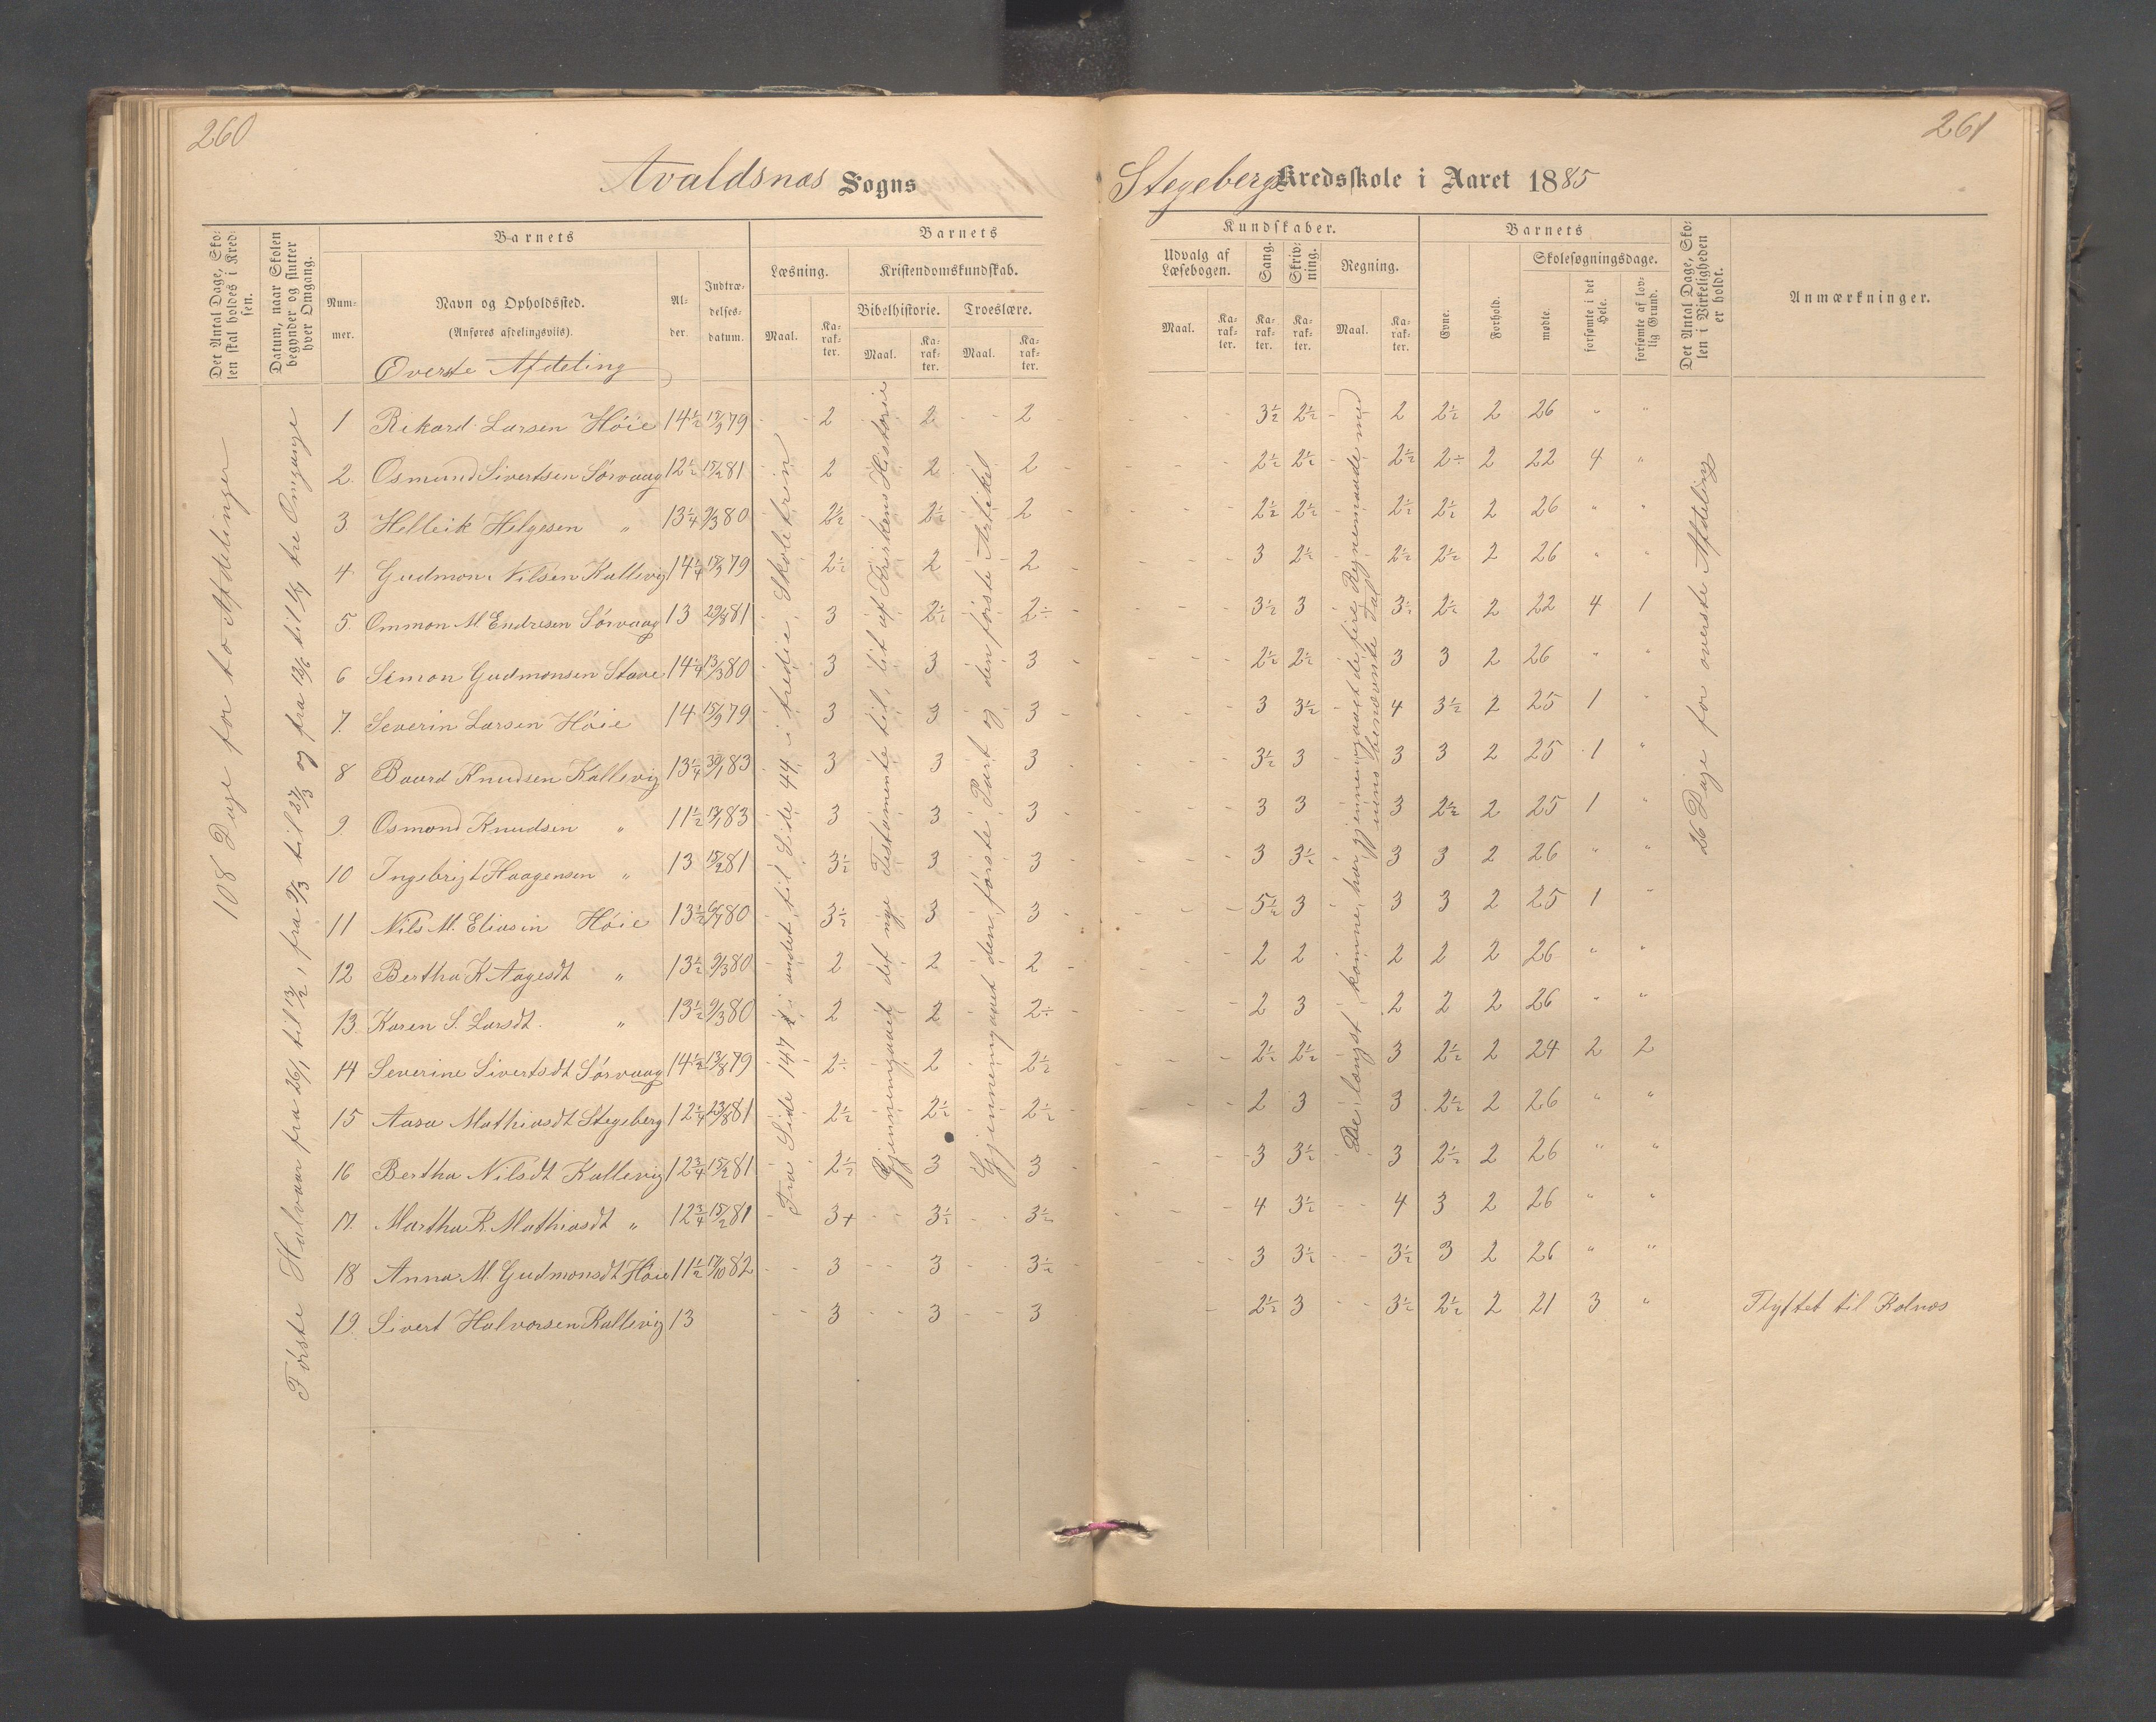 260
261
Avaldsnæs Sogns
Stegebergs Kredsskole i Aaret 1885
Det Antal Dage, Sko-
len skal holdes i Kred-
sen.
Datum, naar Skolen
begynder og slutter
hver Omgang.
Barnets
Num-
mer.
Navn og Opholdssted.
(Anføres afdelingsviis).
Al-
der.
Indtræ-
delses-
datum.
Barnets
Læsning.
Kristendomskundskab.
Bibelhistorie. Troeslære.
Maal.
Ka-
rak-
ter.
Maal.
Ka-
rak-
ter.
Maal.
Ka-
rak-
ter.
Kundskaber.
Udvalg af
Læsebogen.
Sang.
Skriv-
ning.
Regning.
Maal.
Ka-
rak-
ter.
Ka-
rak-
ter.
Ka-
rak-
ter.
Maal.
Ka-
rak-
ter.
Barnets
Evne.
Forhold.
Skolesøgningsdage.
mødte.
forsømte i det
Hele.
forsømte af lov-
lig Grund.
Det Antal Dage, Sko-
len i Virkeligheden
er holdt.
Anmærkninger.
Øverste Afdeling
108 Dage for to Afdelinger
Første Halvaar fra 26/1 til 13/2, fra 2/3 til 27/3 og fra 12/6 til 1/7 tre Omgange
Fra Side 147 i andet til Side 44 i tredie Skoletrin
Gjennemgaaet det nye Testamente til, lit af Kirkens Historie
Gjennemgaaet den første Part og den første Artikel
De længst komne har gjennemgaaet de fire Regnemaade med
uens benævnte Tal
26 Dage for øverste Afdeling
1 Rikard Larsen Høie 14½ 18/3 79 2 2 2 3½ 2½ 2 2½ 2 26 " "
2. Osmund Sivertsen Sørvaag 12½ 15/2 81 2 2 2 2½ 2½ 2½ 2÷ 2 22 4 "
3 Helleik Helgesen " 13¼ 9/3 80 2½ 2½ 2 2½ 2½ 2½ 2½ 2 26 " "
4 Gudmon Nilsen Kallevig 14¼ 18/3 79 2½ 2 2 3 2½ 2½ 2½ 2 26 " "
5. Ommon M. Endresen Sørvaag 13 29/8 81 3 2½ 2÷ 3½ 3 3½ 2½ 2 22 4 1
6 Simon Gudmonsen Stave 14¼ 13/3 80 3 3 3 2½ 2½ 3 3 2 26 " "
7. Severin Larsen Høie 14 15/9 79 3 3 3 3 3½ 4 3½ 2 25 1 "
8 Baard Knudsen Kallevig 13¼ 30/1 83 3 3 3 3½ 3 3 3 2 25 1 "
9. Osmond Knudsen " 11½ 13/1 83 3 3 3 3 3 3 2½ 2 25 1 "
10 Ingebrigt Haagensen " 13 15/2 81 3½ 3 3 3 3½ 3 3 2 26 " "
11 Nils M. Eliasin Høie 13½ 6/7 80 3½ 3 3 5½ 3 3 3 2 25 1 "
12 Bertha K Aagesdt " 13½ 9/3 80 2 2 2 2 2 2 2 2 26 " "
13. Karen S. Larsdt. " 13½ 9/3 80 2 2 2÷ 2 3 2 2 2 26 " "
14 Severine Sivertsdt Sørvaag 14½ 13/8 79 2÷ 2 2½ 2½ 2½ 3 2½ 2 24 2 2
15 Aasa Mathiasdt Stegeberg 12¼ 23/8 81 2½ 2½ 2½ 2 3 3 2½ 2 26 " "
16 Bertha Nilsdt Kallevig 12¾ 15/2 81 2½ 3 3 3 3½ 3 2½ 2 26 " "
17. Martha R. Mathiasdt " 12¾ 15/2 81 3+ 3½ 3½ 4 3½ 4 3 2 26 " "
18 Anna M. Gudmonsdt Høie 11½ 17/10 82 3 3 3½ 3 3½ 3½ 3 2 26 " "
19. Sivert Halvorsen Kallevig 13 3 3 3 2½ 3 3½ 2½ 2 21 3 " Flyttet til Kolnæs